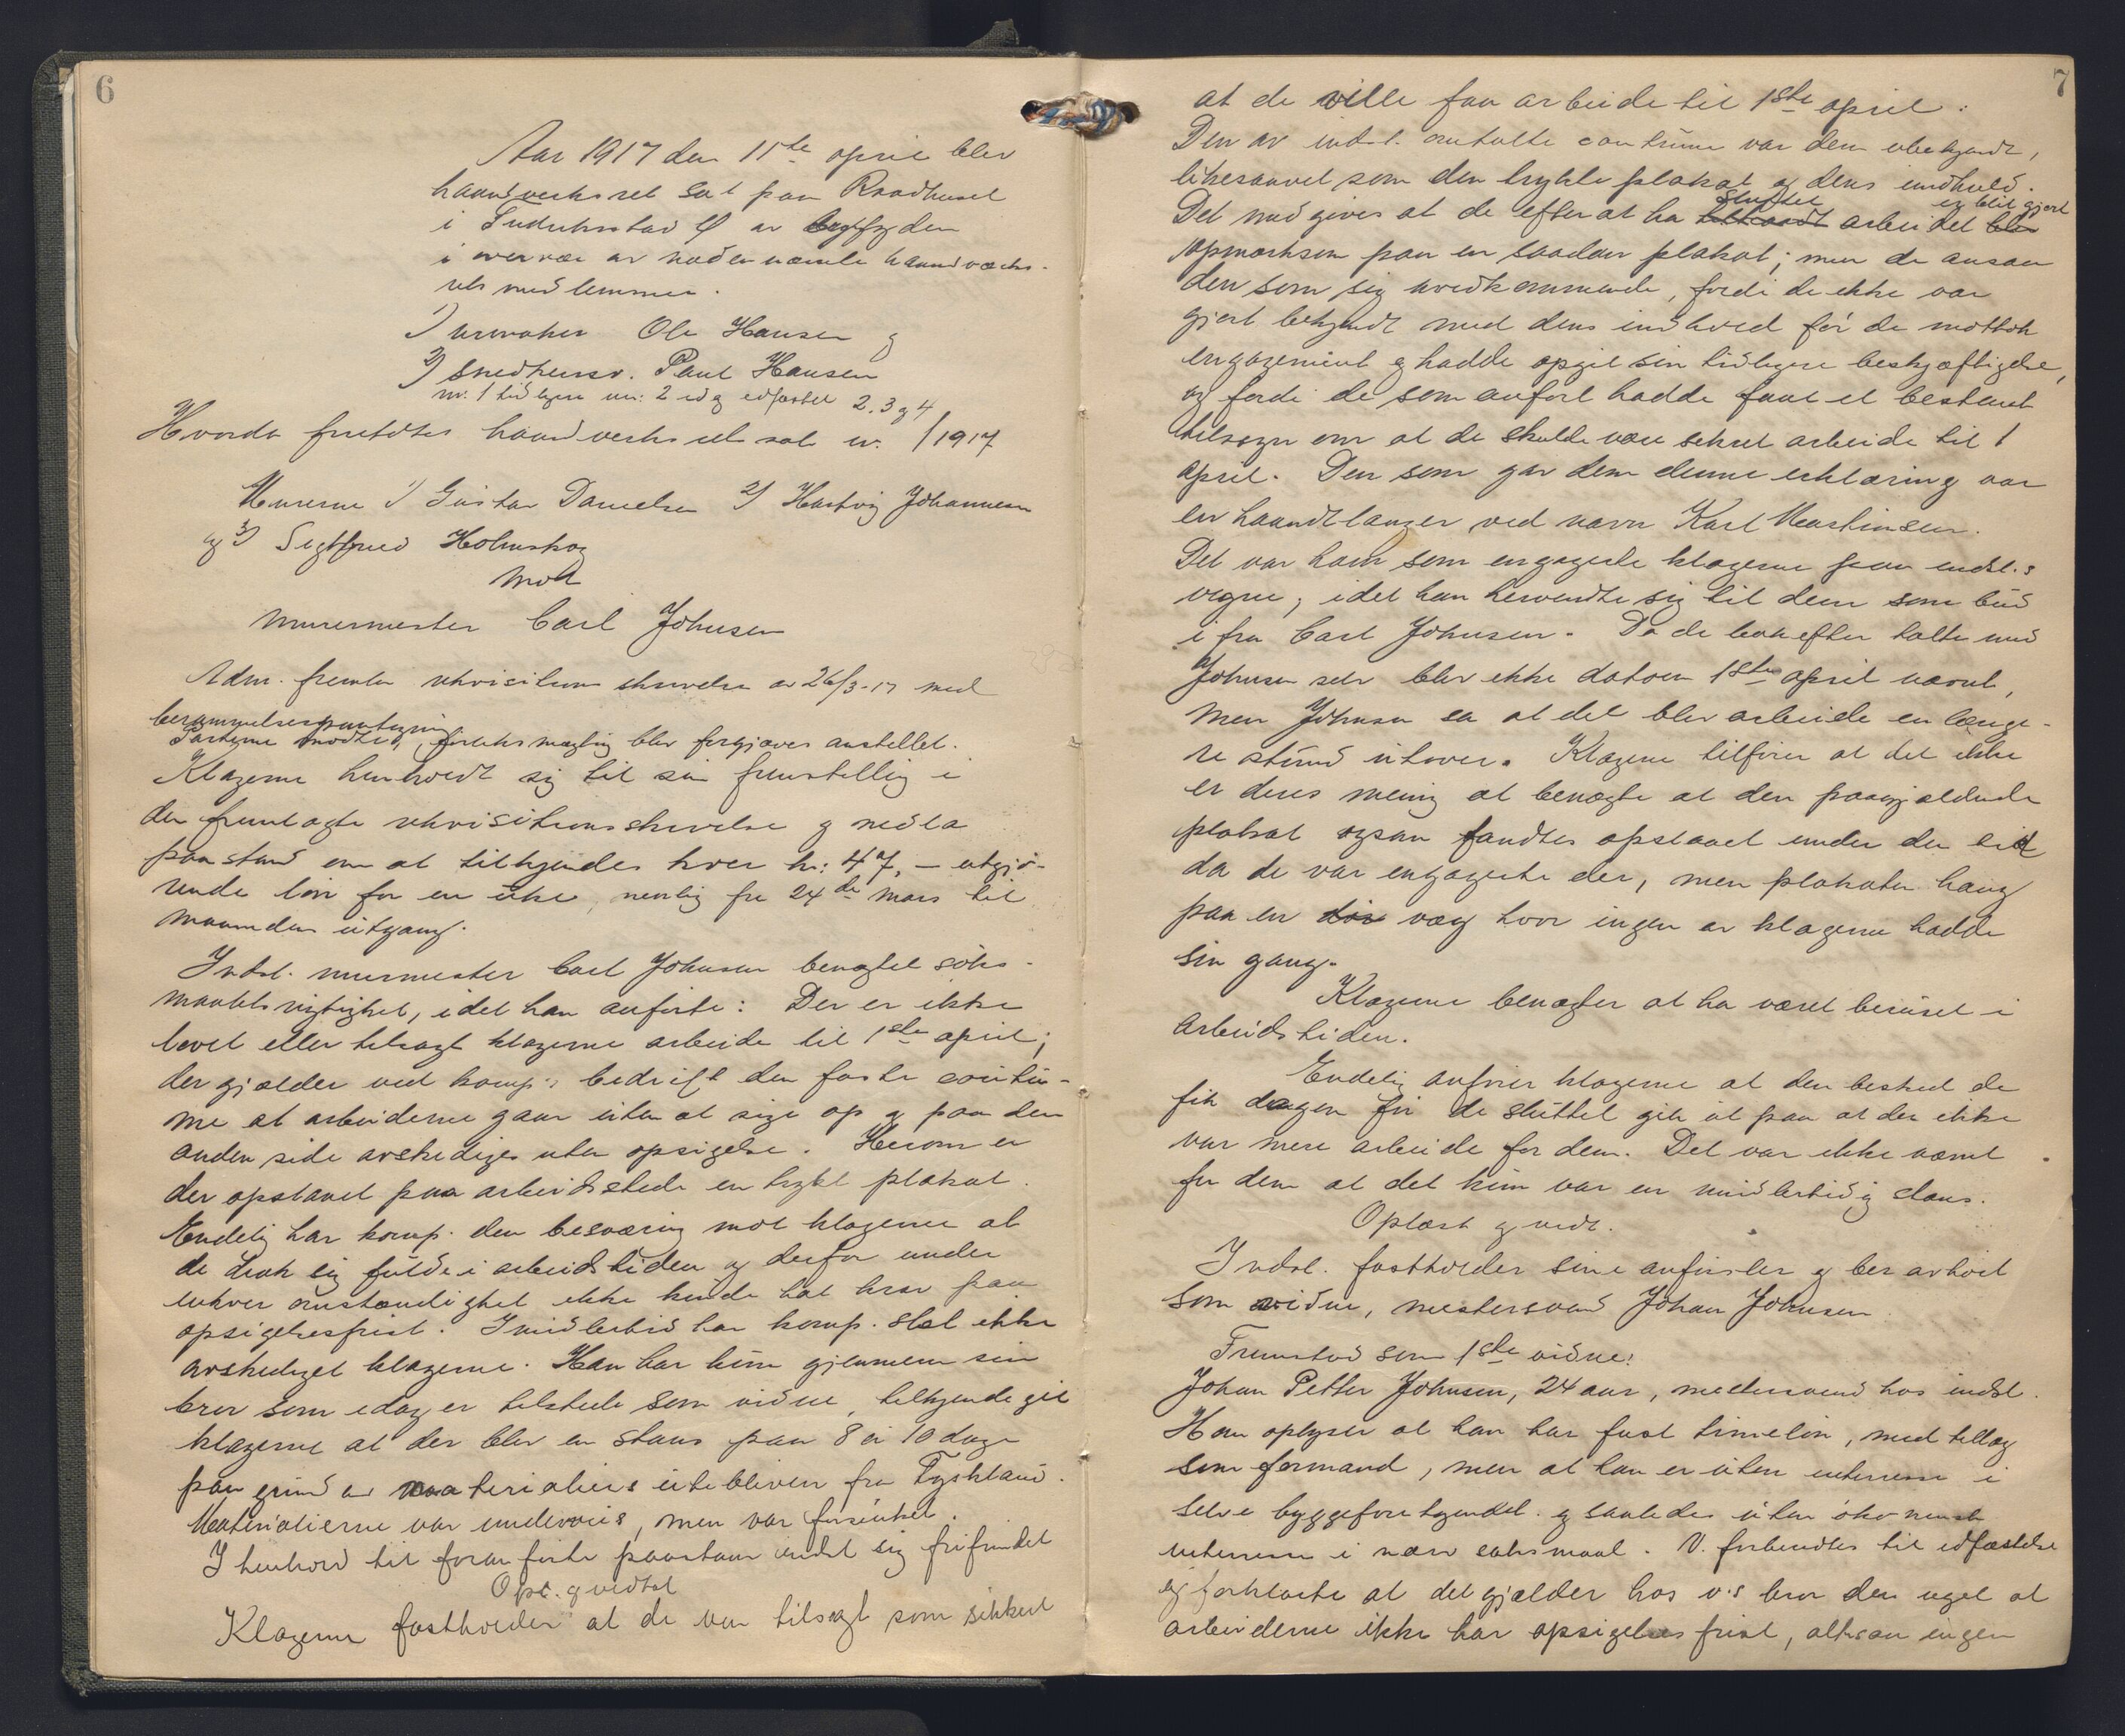 6
Aar 1917 den 11te april blev
haandverksret sat paa Raadhuset
i Fredriksstad av byfogden
i overvær av nedennævnte haandverks-
rets medlemmer.
1) urmaker Ole Hansen og
2) snedkersv. Paul Hansen
nr. 1 tidligere nr: 2 idag edfæstet 2. 3 og 4
Hvorda foretokes haandverksretssak nr. 1/1917
Murerne 1) Gustav Danielsen 2) Hartvig Johannesen
og 3) Sigfried Holmskog
mot
murermester Carl Johnsen
Adm. fremla rekvisitions skrivelse av 26/3-17 med
berammelsespaategning
Parterne mødte, forliksmægling blev forgjæves anstillet.
Klagerne henholdt sig til sin fremstilling i
den fremlagte rekvisitionsskrivelse og nedla
paastand om at tilkjendes hver kr: 47,- utgjø-
rende løn for en uke, nemlig fra 24de mars til
maanedens utgang.
Indst. murmester Carl Johnsen benegtet søks-
maalets rigtighet, idet han anførte: Der er ikke
lovet eller tilsagt klagerne arbeide til 1ste april;
der gjælder ved komp.s bedrift den faste coutu-
me at arbeiderne gaar uten at sige op og paa den
anden side avskediges uten opsigelse. Herom er
der opslaaet paa arbeidsstedet en trykt plakat.
Endelig har komp. den besværing mot klagerne at
de drak sig fulde i arbeidstiden og derfor under
enhver omstændighet ikke kunde hat krav paa
opsigelsesfrist. Imidlertid har komp. slet ikke
avskediget klagerne. Han har kun gjennem sin
bror som idag er tilstede som vidne, tilkjendegit
klagerne at der blev en stans paa 8 à 10 dage
paa grund av materialiers utebliven fra Tyskland.
Materialierne var underveis, men var forsinket.
I henhold til foranførte paastaar indst sig frifundet
Opl. og vedtat
Klagerne fastholder at de var tilsagt som sikkert
7
at de ville faa arbeide til 1ste april.
Den av indst. omtalte coutume var dem ubekjendt,
likesaavel som den trykte plakat og dens indhold.
sluttet er blit gjort
Det medgives at de efter at ha arbeidet blev
opmerksom paa en saadan plakat; men de ansaa
den som sig uvedkommende, fordi de ikke var
gjort bekjendt med dens indhold før de mottok
engagement og hadde opgit sin tidligere beskjæftigelse,
og fordi de som anført hadde faat et bestemt
tilsagn om at de skulde være sikret arbeide til 1
april. Den som gav dem denne erklæring var
en haandlanger ved navn Karl Martinsen.
Det var ham som engagerte klagerne paa indst.s
vegne, idet han henvendte sig til dem som bud
ifra Carl Johnsen. Da de bakefter talte med
Johnsen selv blev ikke datoen 1ste april nævnt,
men Johnsen sa at det blev arbeide en længe-
re stund utover. Klagerne tilføier at det ikke
er deres mening at benegte at den paagjeldende
plakat ogsaa fandtes opslaaet under den tid
da de var engagerte der, men plakaten hang
paa en dør væg hvor ingen av klagerne hadde
sin gang.
Klagerne benegter at ha været beruset i
arbeidstiden.
Endelig anfører klagerne at den besked de
fik dagen før de sluttet gik ut paa at der ikke
var mere arbeide for dem. Det var ikke nævnt
for dem at det kun var en midlertidig stans.
Oplæst og vedt.
Indst. fastholder sine anførsler og ber avhørt
som vidne, mestersvend Johan Johnsen
Fremstod som 1ste vidne:
Johan Petter Johnsen, 24 aar, mestersvend hos indst.
Han oplyser at han har fast timeløn, med tillæg
som formand, men at han er uten interesse i
selve byggeforetagendet og saaledes uten økonomisk
interesse i nærv. søksmaal. V. forberedtes til edfæstelse
og forklarte at det gjælder hos v.s bror den regel at
arbeiderne ikke har opsigelses frist, altsaa ingen